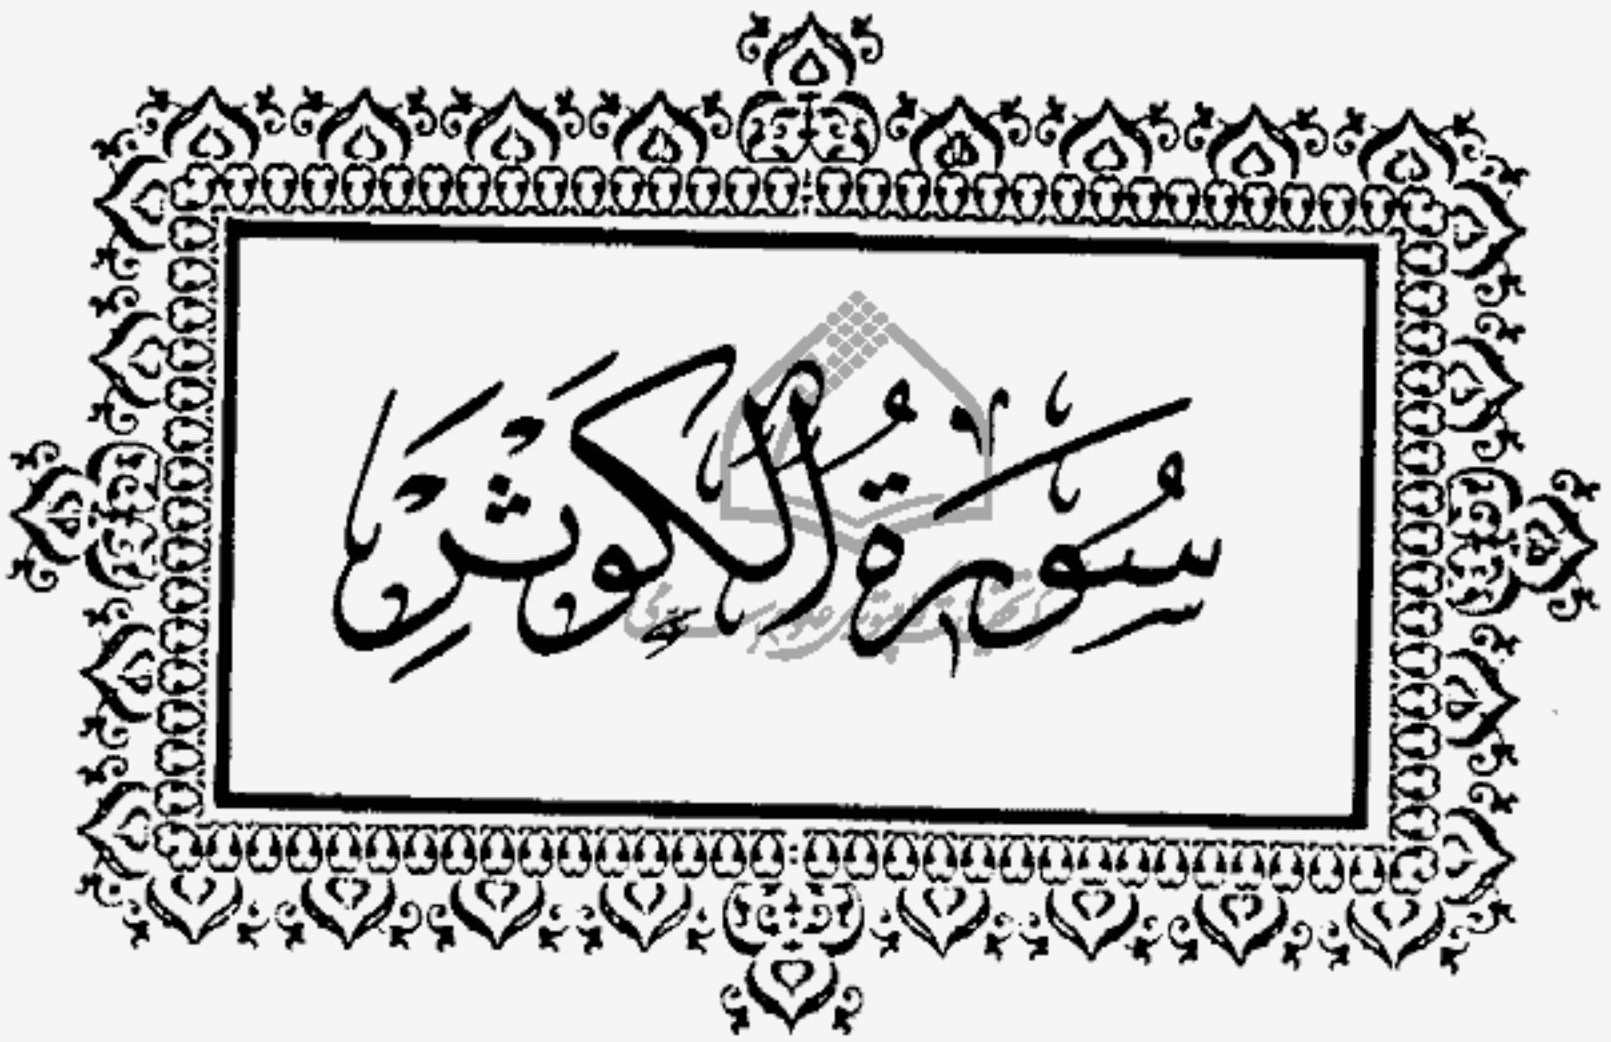 سُورَةُ الْكَوْثَرِ